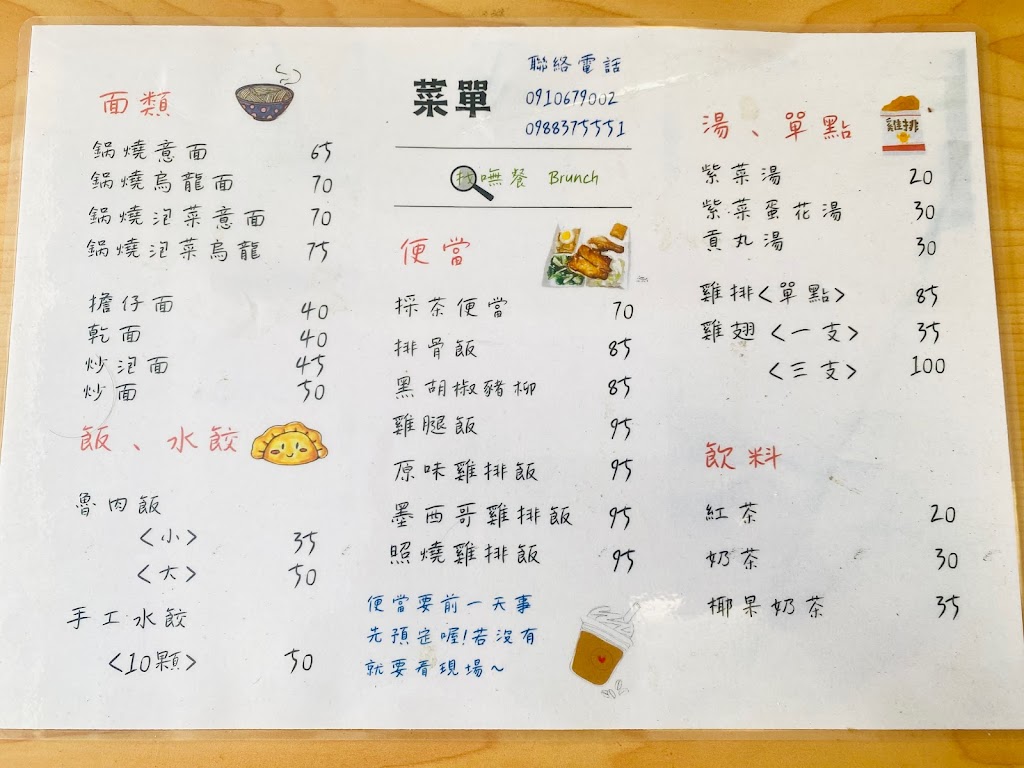 面類
鍋燒意面 65
鍋燒烏龍面 70
鍋燒泡菜意面 70
鍋燒泡菜烏龍 75
擔仔面 40
乾面 40
炒泡面 45
炒面 50
飯、水餃
魯肉飯
<小> 35
<大> 50
手工水餃
<10顆> 50
菜單
聯絡電話
0910679002
0988375551
找嘸餐 Brunch
便當
採茶便當 70
排骨飯 85
黑胡椒豬柳 85
雞腿飯 95
原味雞排飯 95
墨西哥雞排飯 95
照燒雞排飯 95
便當要前一天事
先預定喔!若沒有
就要看現場~
湯、單點
雞排
紫菜湯 20
紫菜蛋花湯 30
貢丸湯 30
雞排<單點> 85
雞翅<一支> 35
<三支> 100
飲料
紅茶 20
奶茶 30
椰果奶茶 35